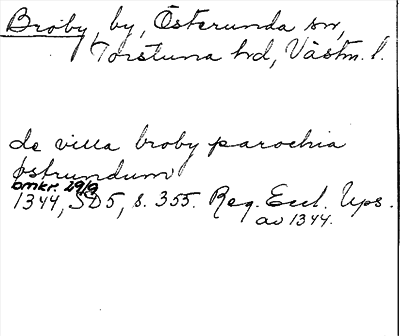 Broby, by, Österunda sn,
Torstuna hd, Västm. l.
de villa broby parochia
østrundum
omkr. 29/9
1344, SD5, s. 355. Reg. Eccl. Ups.
av 1344.